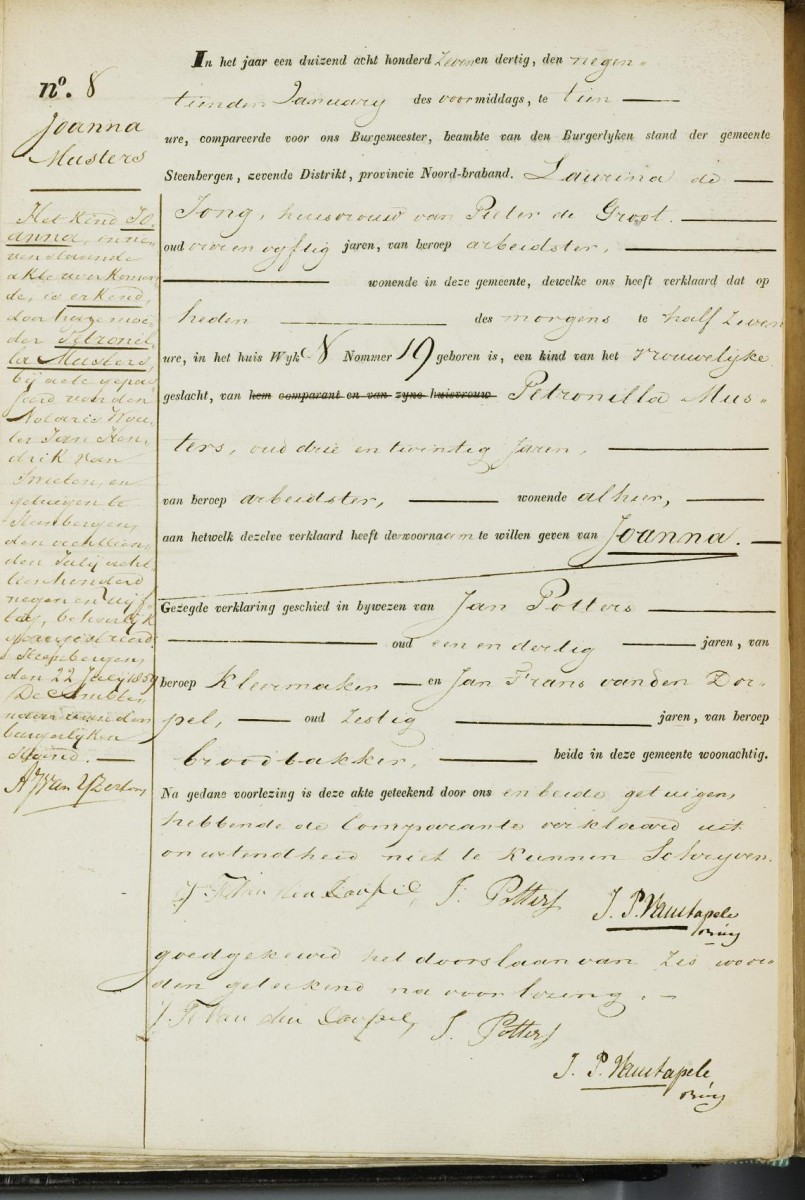 n°. 8
Joanna
Musters
Het kind Jo
anna, in ne
venstaande
akte voorkomen
de, is erkend,
door hare moe
der Petronil
la Musters,
bij acte gepas
seerd voor den
Notaris Wou
ter Jan Hen,
drik van
en
getuigen te
Steenbergen,
den achttien
den July acht
tien honderd
negen en vijf
tig, behoorlijk
geregistreerd.
Steenbergen,
den 22 July 1859
De Ambte
naar van den
burgerlijken
Stand. —
In het jaar een duizend acht honderd Zeven en dertig, den negen-
tienden January des voormiddags, te tien —
ure, compareerde voor ons Burgemeester, beambte van den Burgerlyken stand der gemeente
Steenbergen, zevende Distrikt, provincie Noord-braband. Laurina de —
Jong, huisvrouw van Pieter de Groot. —
oud vier en vyftig jaren, van beroep arbeidster, —
— wonende in deze gemeente, dewelke ons heeft verklaard dat op
heden — des morgens te half Zeven
ure, in het huis Wyk N Nommer 19 geboren is, een kind van het vrouwelijke
geslacht, van hem comparant en van zyne huisvrouw Petronilla Mus-
ters, oud drie en twintig Jaren, —
van beroep arbeidster, — wonende alhier, —
aan hetwelk dezelve verklaard heeft de voornaam te willen geven van Joanna. —
Gezegde verklaring geschied in bywezen van Jan Potters —
— oud een en dertig — jaren, van
beroep Kleermaker — en Jan Frans van den Dor-
pel, — oud Zestig — jaren, van beroep
broodbakker, — beide in deze gemeente woonachtig.
Na gedane voorlezing is deze akte geteekend door ons en beide getuigen,
hebbende de Comparante verklaard uit
onwetendheid niet te kunnen Schryven.
J. F. Van den Dorpel, J. Potters J. P. Vanstapele
Brug
goedgekeurd het doorslaan van Zes woor-
den geteekend na voorlezing. —
J. F. Van den Dorpel, J. Potters
J. P. Vanstapele
Brug